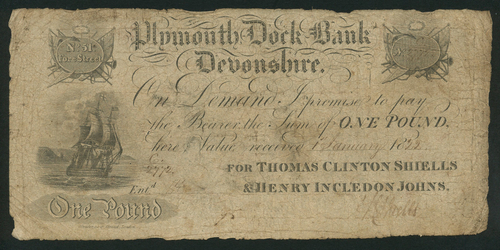 No. 51.
Fore Street
Plymouth Dock Bank
Devonshire.
On Demand I promise to pay
the Bearer, the Sum of ONE POUND,
here, Value received 1 January 182
FOR THOMAS CLINTON SHIELLS
& HENRY INCLEDON JOHNS,
Ent.d
One Pound